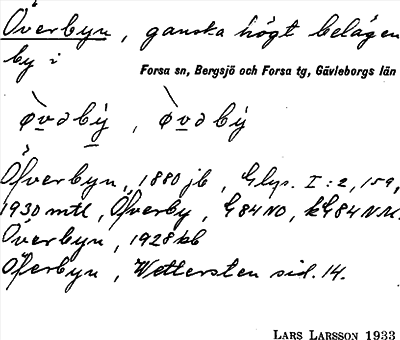 Överbyn, ganska högt belägen
by i
Forsa sn, Bergsjö och Forsa tg, Gävleborgs län
øvəby̌, øvəbý
Öfverbyn, 1880 jb, Glys. I:2, 159,
1930 mtl, Öfverby, G 84 NO, kG 84 NV.
Överbyn, 1928 kb
Öferbyn, Wettersten sid. 14.
LARS LARSSON 1933